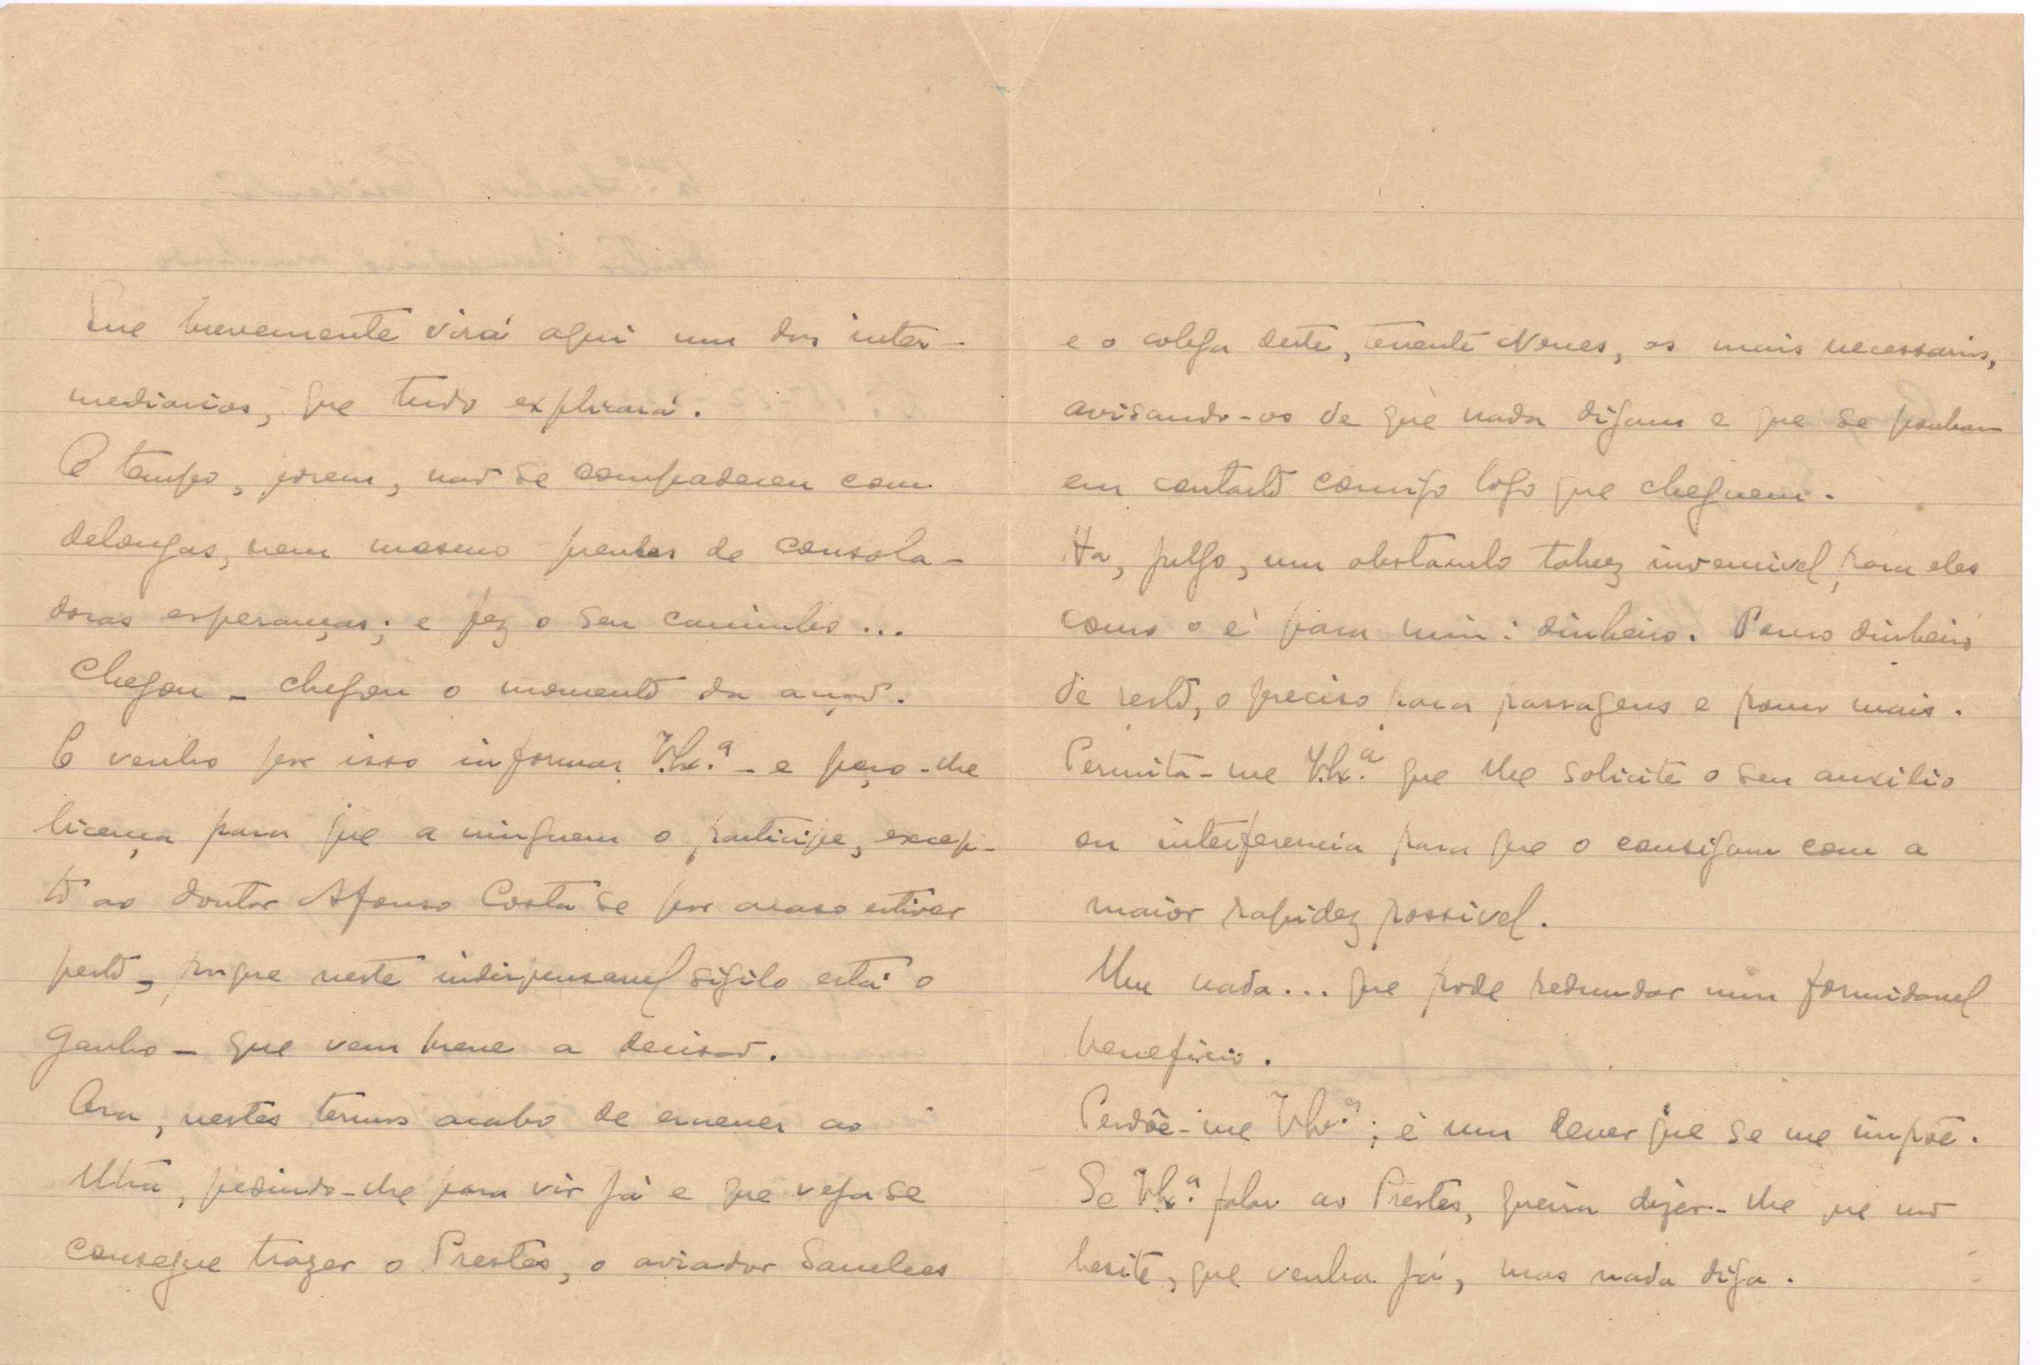 que brevemente virá aqui um dos inter-
mediarios, que tudo explicará.
O tempo, porem, não se compadeceu com
delongas, nem mesmo prenhes de consola-
doras esperanças; e fez o seu caminho...
Chegou - chegou o momento da acção.
E venho por isso informar V.Ex.ª - e peço-lhe
licença para que a ninguem o participe, excep-
to ao doutor Afonso Costa se por acaso estiver
perto, porque neste indispensavel sigilo está o
ganho - que vem breve a decisão.
Ora, nestes termos acabo de escrever ao
Utra, pedindo-lhe para vir já e que veja se
consegue trazer o Prestes, o aviador Sanches
e o colega deste, tenente Neves, os mais necessarios,
avisando-os de que nada digam e que se ponham
em contacto comigo logo que cheguem.
Ha, julgo, um obstaculo talvez invencivel, para eles
como o é para mim: dinheiro. Pouco dinheiro
de resto, o preciso para passagens e pouco mais.
Permita-me V.Ex.ª que lhe solicite o seu auxilio
ou interferencia para que o consigam com a
maior rapidez possivel.
Um nada... que pode redundar num formidavel
beneficio.
Perdõe-me V.Ex.ª; é um dever que se me impõe.
Se V.Ex.ª falar ao Prestes, queira dizer-lhe que não
hesite, que venha já, mas nada diga.